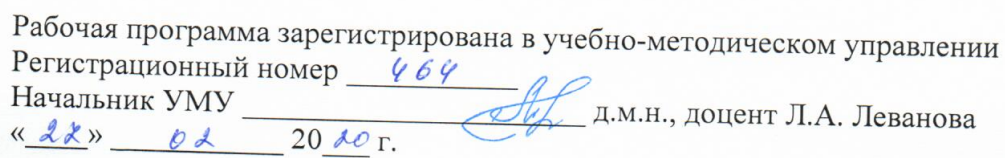 Рабочая программа зарегистрирована в учебно-методическом управлении
Регистрационный номер 464
Начальник УМУ д.м.н., доцент Л.А. Леванова
«27» 02 2020 г.